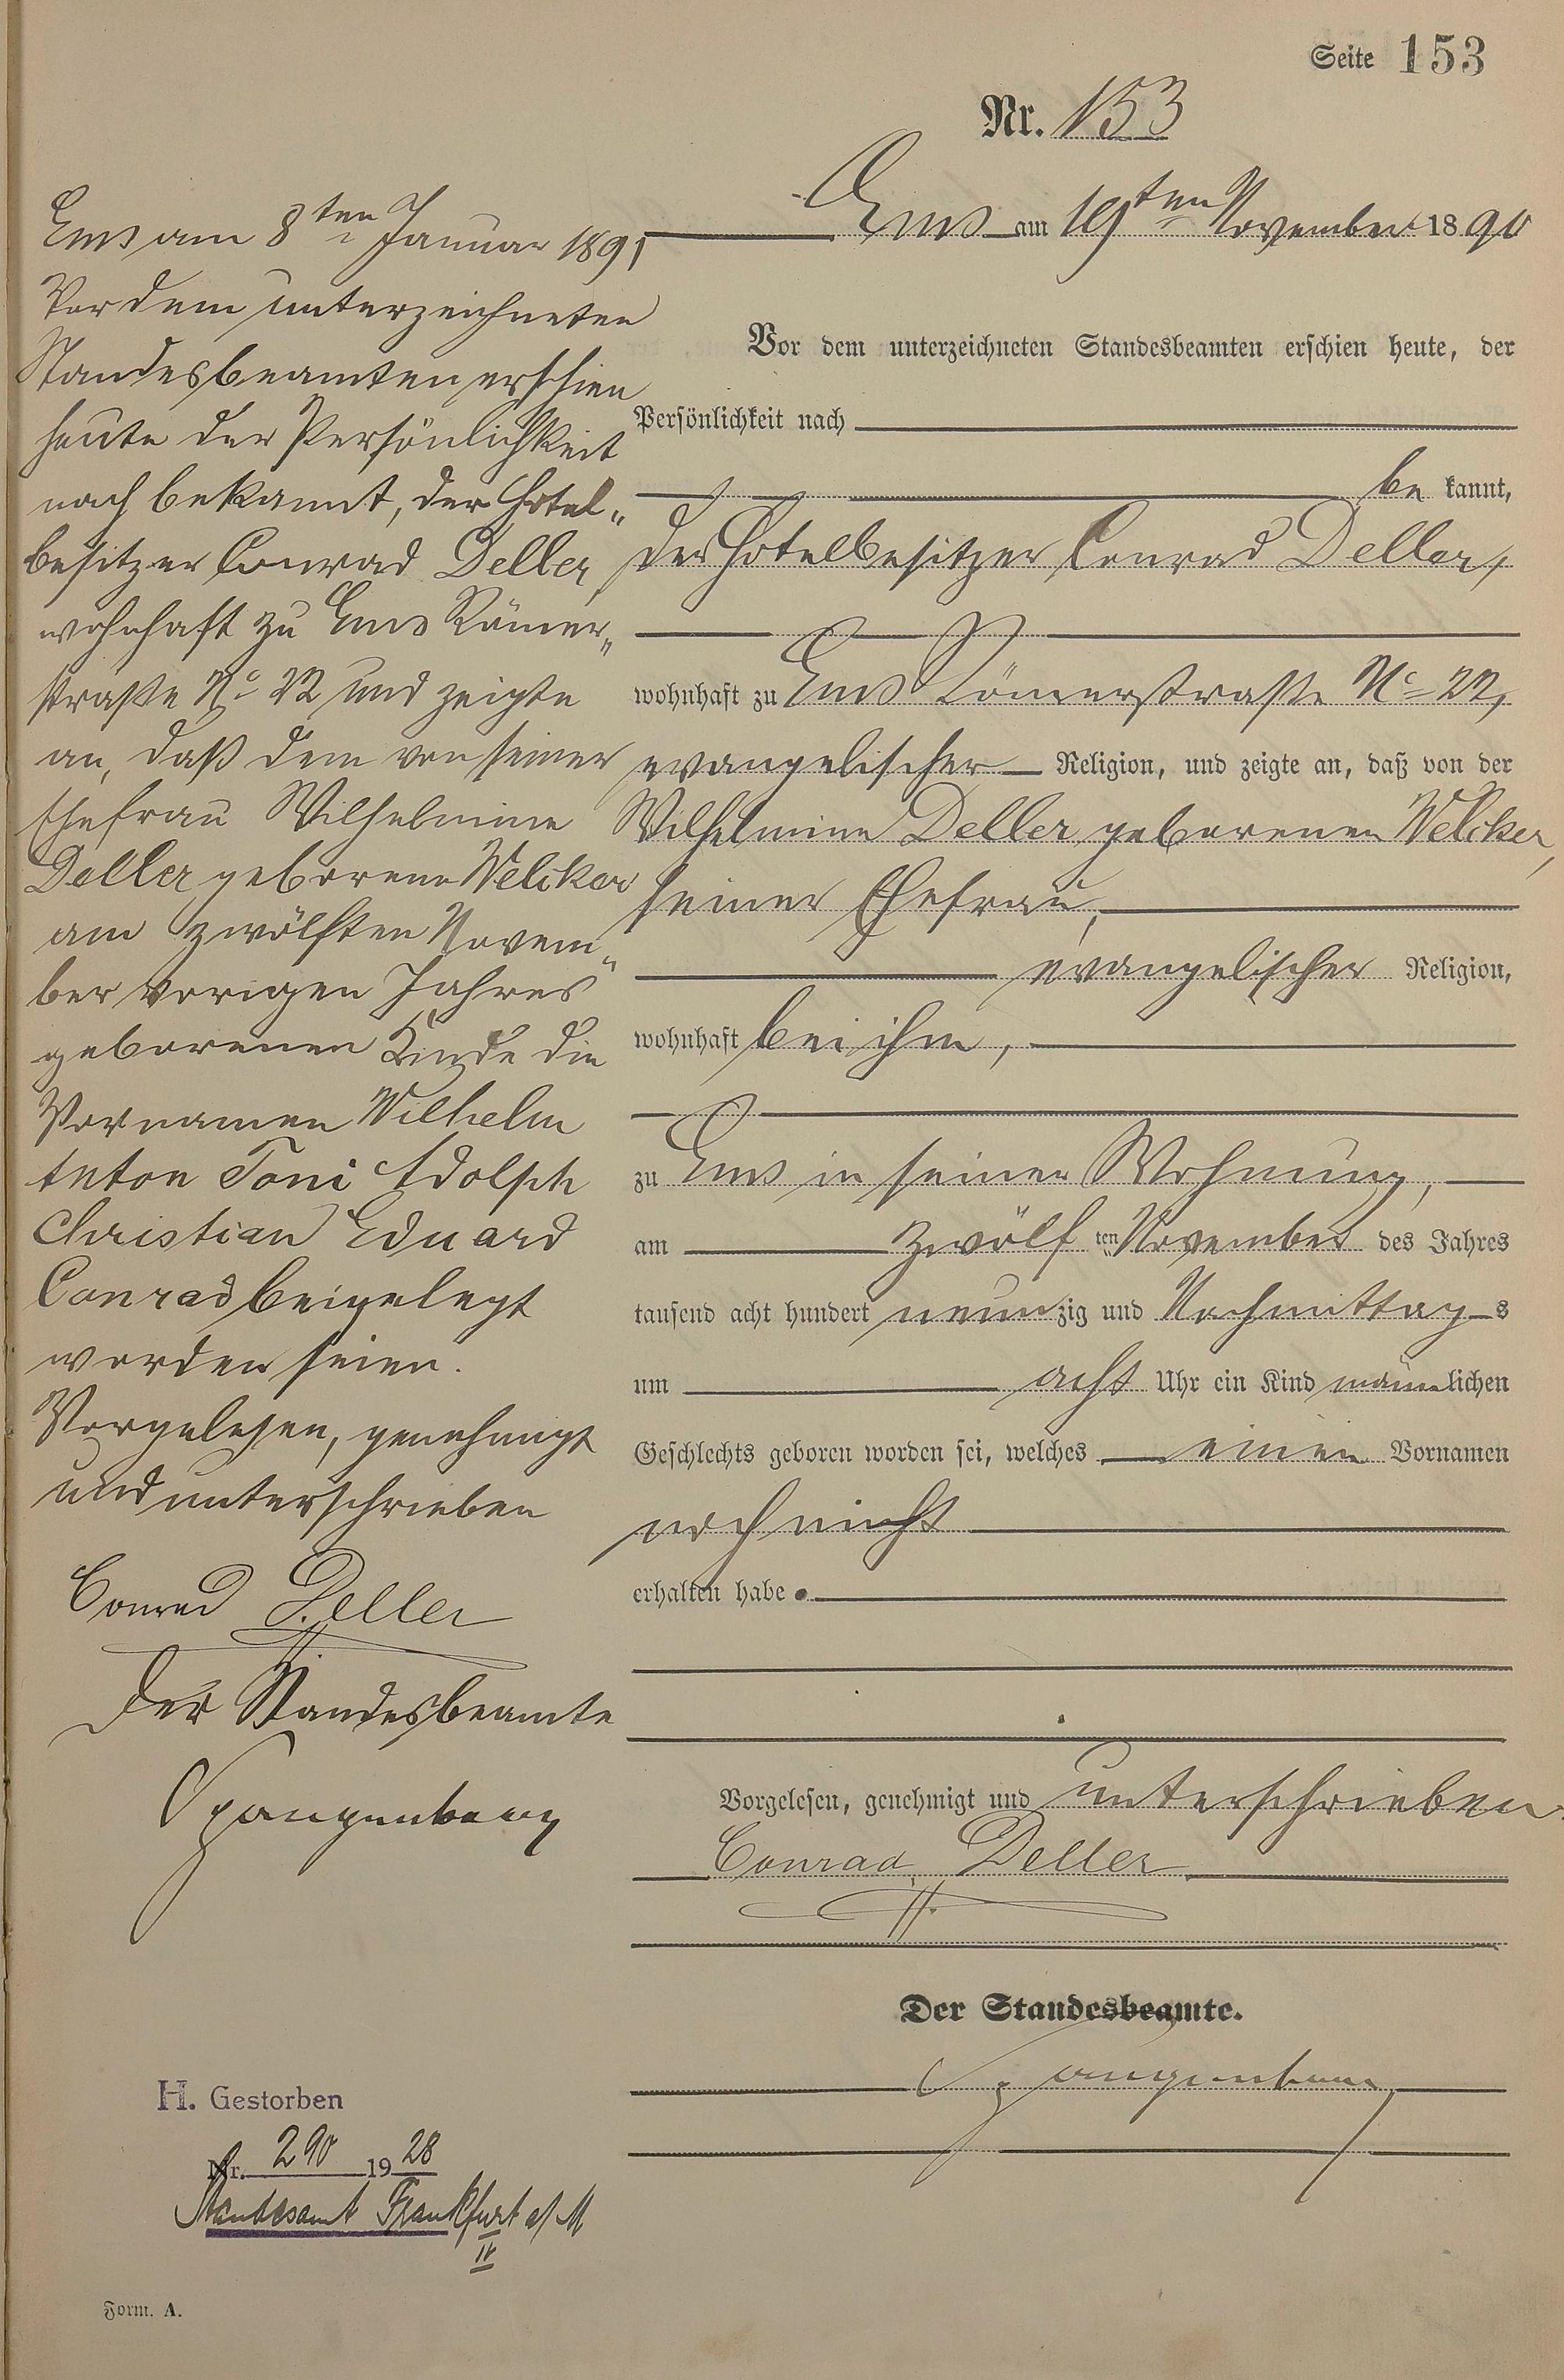 Seite 153
Nr. 153
Ems am 19ten November 1890
Vor dem unterzeichneten Standesbeamten erschien heute, der
Persönlichkeit nach
be kannt,
der Hotelbesitzer Conrad Deller,
wohnhaft zu Ems Römerstraße No 22,
evangelischer Religion, und zeigte an, daß von der
Wilhelmine Deller geborenen Welcker,
seiner Ehefrau,
evangelischer Religion,
wohnhaft bei ihm,
zu Ems in seiner Wohnung,
am zwölf ten November des Jahres
tausend acht hundert neunzig und Nachmittags
um acht Uhr ein Kind männlichen
Geschlechts geboren worden sei, welches einen Vornamen
noch nicht
erhalten habe.
Vorgelesen, genehmigt und unterschrieben
Conrad Deller
Der Standesbeamte.
Spangenberg
Ems am 8ten Januar 1891
Vor dem unterzeichneten
Standesbeamten erschien
heute der Persönlichkeit
nach bekannt, der Hotel„
besitzer Conrad Deller,
wohnhaft zu Ems Römer„
straße No 22 und zeigte
an, daß dem von seiner
Ehefrau Wilhelmine
Deller geborene Welcker
am zwölften Novem„
ber vorigen Jahres
geborenen Kinde die
Vornamen Wilhelm
Anton Toni Adolph
Christian Eduard
Conrad beigelegt
worden seien.
Vorgelesen, genehmigt
und unterschrieben
Conrad Deller
Der Standesbeamte
Spangenberg
H. Gestorben
Nr. 290 1928
Standesamt Frankfurt a/M
IV
Form. A.